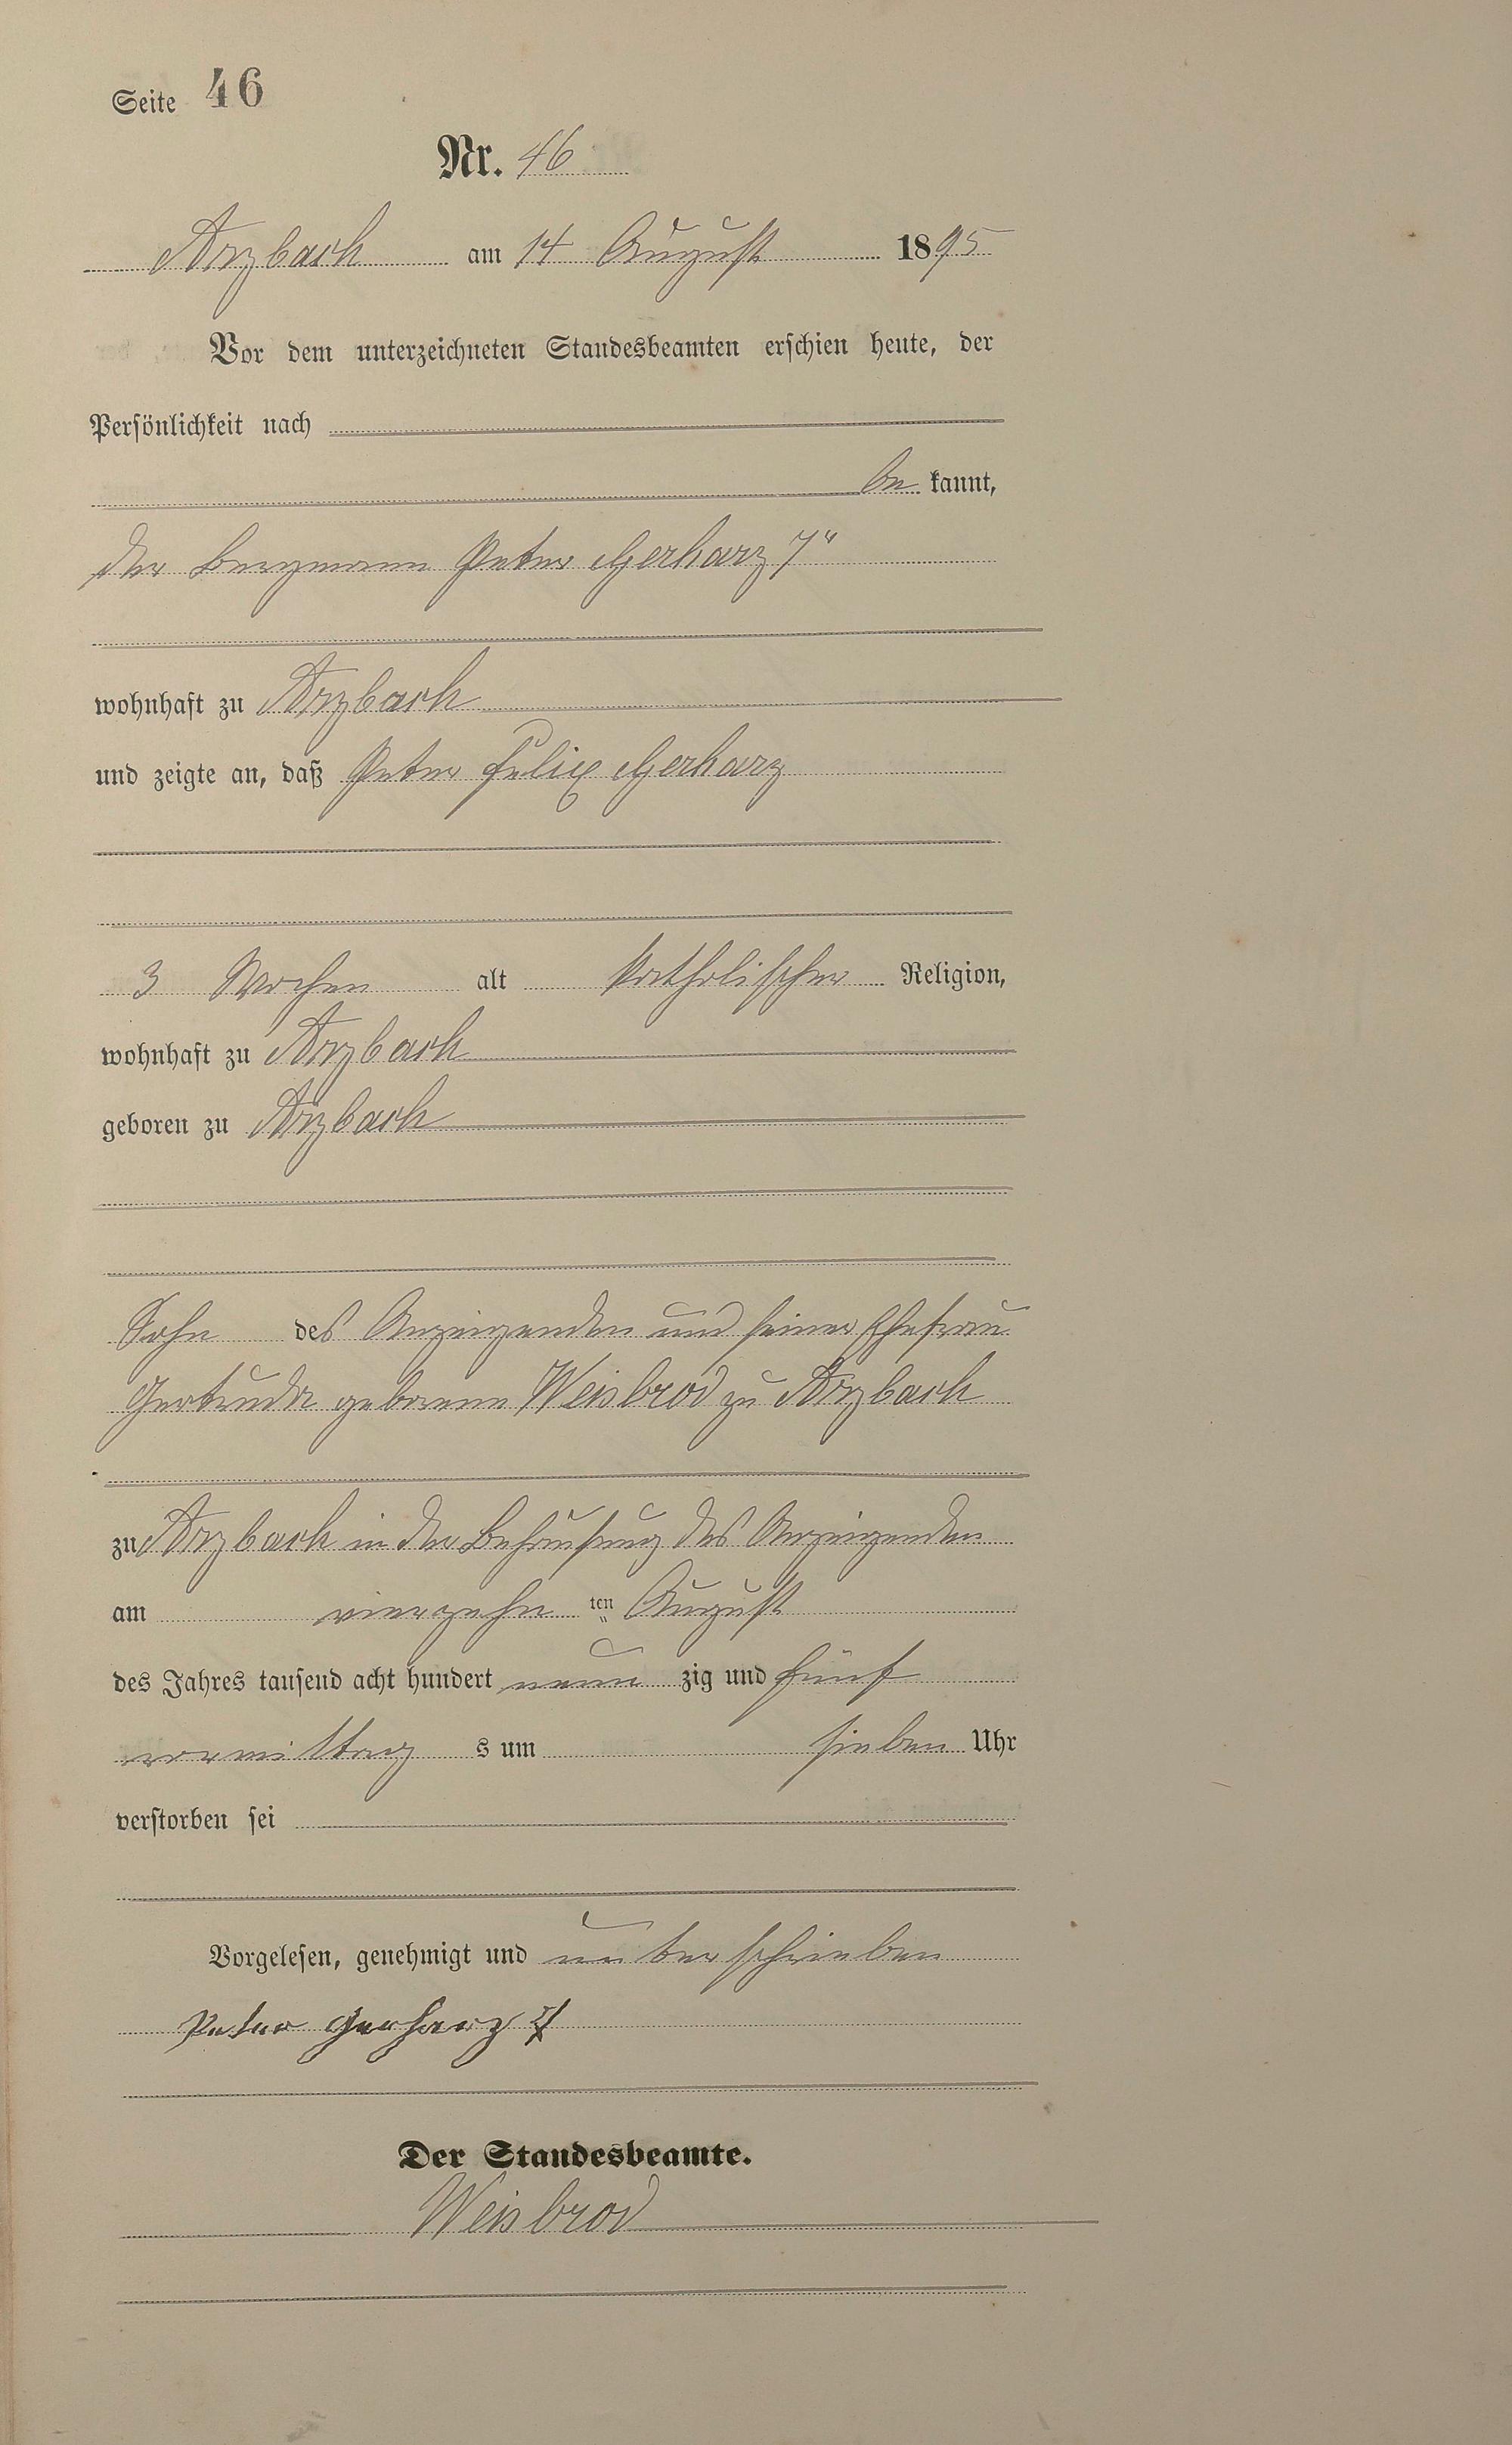 Seite 46
Nr. 46
Arzbach am 14 August 1895
Vor dem unterzeichneten Standesbeamten erschien heute, der
Persönlichkeit nach
be kannt,
der Bergmann Peter Gerharz 7"
wohnhaft zu Arzbach
und zeigte an, daß Peter Felix Gerharz
3 Wochen alt katholischer Religion,
wohnhaft zu Arzbach
geboren zu Arzbach
Sohn des Anzeigenden und seiner Ehefrau
Gertruda geborene Weisbrod zu Arzbach
zu Arzbach in der Behausung des Anzeigenden
am vierzehn ten August
des Jahres tausend acht hundert neun zig und fünf
vormittag s um sieben Uhr
verstorben sei
Vorgelesen, genehmigt und unterschrieben
Peter Gerharz 7
Der Standesbeamte.
Weisbrod